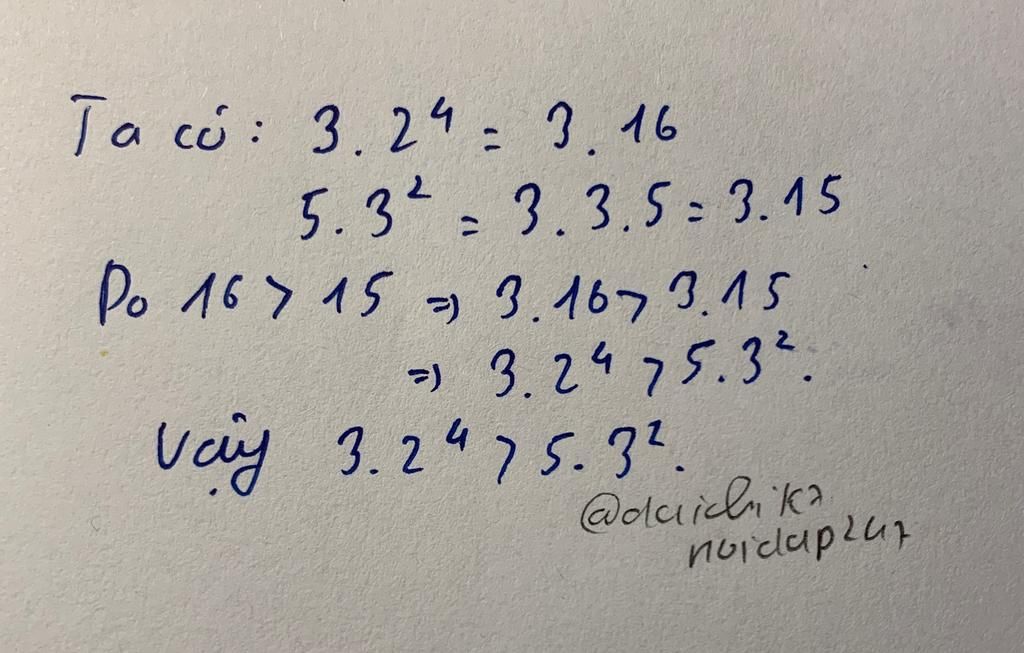 Ta có: 3.2⁴ = 3.16
5.3² = 3.3.5 = 3.15
Do 16 > 15 => 3.16 > 3.15
=> 3.2⁴ > 5.3².
Vậy 3.2⁴ > 5.3².
@daichik7
hoidap247